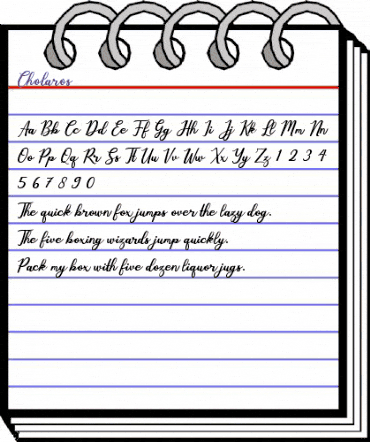 Cholaros
Aa Bb Cc Dd Ee Ff Gg Hh Ii Jj Kk Ll Mm Nn
Oo Pp Qq Rr Ss Tt Uu Vv Ww Xx Yy Zz 1 2 3 4
5 6 7 8 9 0
The quick brown fox jumps over the lazy dog.
The five boxing wizards jump quickly.
Pack my box with five dozen liquor jugs.